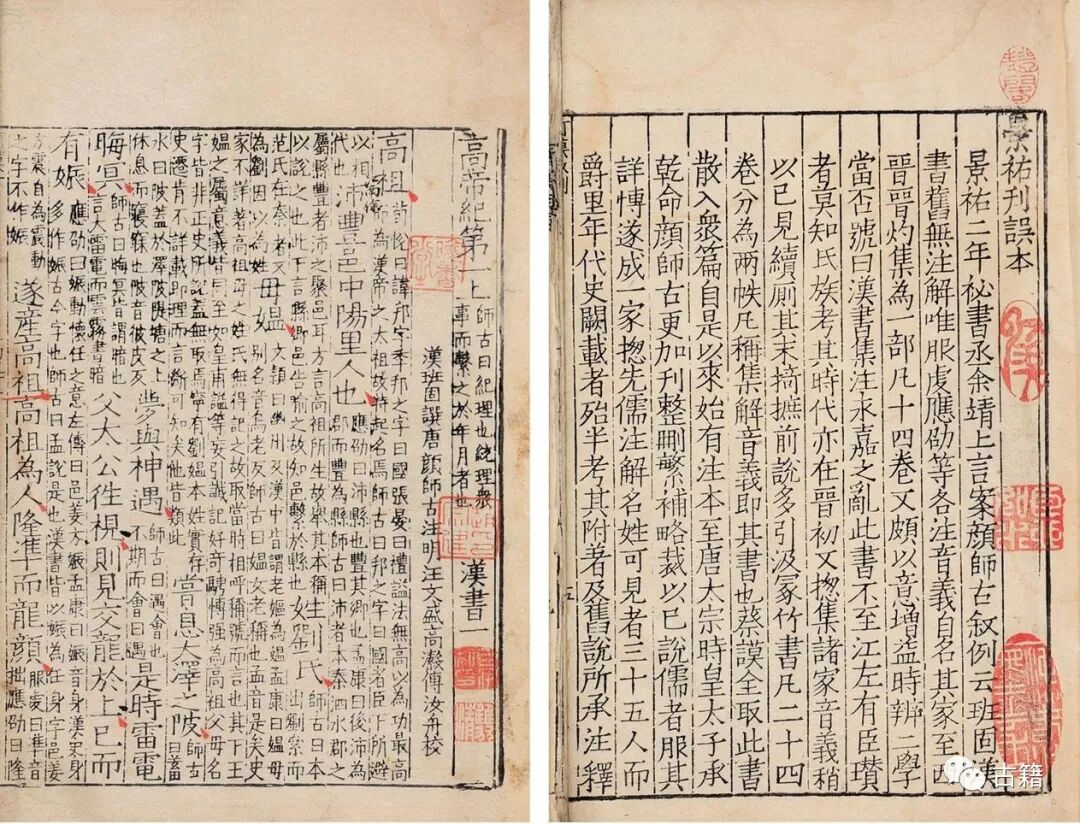 景祐刊誤本
景祐二年秘書丞余靖上言案顏師古叙例云班固漢
書舊無注解唯服虔應劭等各注音義自名其家至西
晉晉灼集為一部凡十四卷又頗以意增益時辨二學
當否號曰漢書集注永嘉之亂此書不至江左有臣瓚
者莫知氏族考其時代亦在晉初又揔集諸家音義稍
以已見續厠其末掎摭前說多引汲冢竹書凡二十四
卷分為兩帙凡稱集解音義即其書也蔡謨全取此書
散入衆篇自是以來始有注本至唐太宗時皇太子承
乾命顏師古更加刊整刪繁補略裁以已說儒者服其
詳愽遂成一家揔先儒注解名姓可見者三十五人而
爵里年代史闕載者殆半考其附者及舊說所承注釋
高帝紀第一上 師古曰紀理也統理衆事而繫之於年月者也 漢書一
漢班固譔唐顏師古注明汪文盛高瀫傅汝舟校
高祖 荀悅曰諱邦字季邦之字曰國張晏曰禮謚法無高以為功最高而為漢帝之太祖故特起名焉師古曰邦之字曰國者臣下所避
以相代也 沛豐邑中陽里人也 應劭曰沛縣也豐其鄉也孟康曰後沛為郡而豐為縣師古曰沛者本秦泗水郡之
屬縣豐者沛之聚邑耳方言高祖所生故舉其本稱以說之也此下言縣鄉邑告喻之故知邑繫於縣也 姓劉氏 師古曰本出劉累而
范氏在秦者又為劉因以為姓 母媼 文穎曰幽州及漢中皆謂老嫗為媼孟康曰媼母別名音烏老反師古曰媼女老稱也孟音是矣史
家不詳著高祖母之姓氏無得記之故取當時相呼稱號而言也其下王媼之屬意義皆同至如皇甫謐等妄引讖記好奇騁愽強為高祖父母名
字皆非正史所說蓋無取焉寧有劉媼本姓實存史遷肯不詳載即理而言斷可知矣他皆類此 嘗息大澤之陂 師古曰蓄
水曰陂蓋於澤陂隄塘之上休息而寢寐也陂音彼皮反 夢與神遇 師古曰遇會也不期而會曰遇 是時雷電
晦冥 師古曰晦冥皆謂暗也言大雷電而雲霧晝暗 父太公徃視則見交龍於上已而
有娠 應劭曰娠動懷任之意左傳曰邑姜方娠孟康曰娠音身漢史身多作娠古今字也師古曰孟說是也漢書皆以娠為任身字邑姜
方震自為震動之字不作娠 遂產高祖高祖為人隆準而龍顏 服虔曰準音拙應劭曰隆
古籍